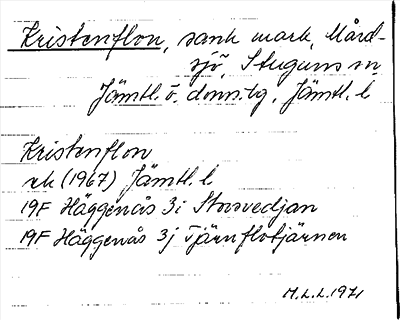 Kristenflon, sank mark, Mård-
sjö, Stuguns sn,
Jämtl. ö. doms.-lg, Jämtl. l.
Kristenflon
ek (1967) Jämtl. l.
19F Häggenås 3i Storvedjan
19F Häggenås 3j Tjärnflotjärnen
M.L.L. 1971